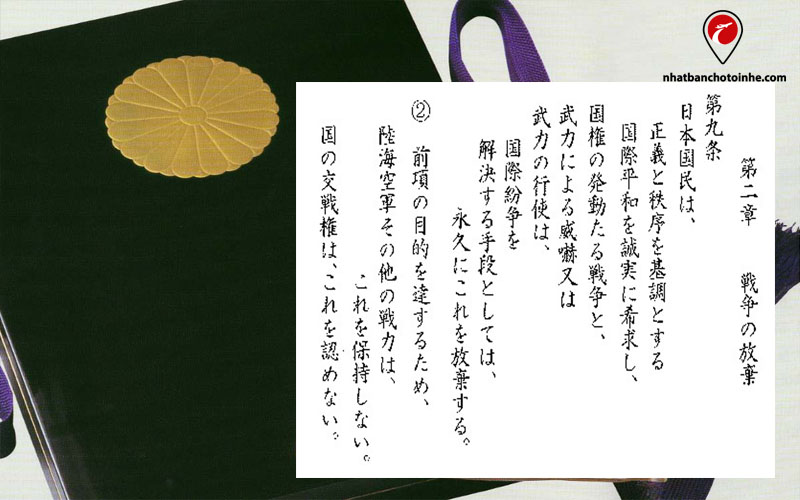 nhatbanchotoinhe.com
第二章　戦争の放棄
第九条
日本国民は、
正義と秩序を基調とする
国際平和を誠実に希求し、
国権の発動たる戦争と、
武力による威嚇又は
武力の行使は、
国際紛争を
解決する手段としては、
永久にこれを放棄する。
② 前項の目的を達するため、
陸海空軍その他の戦力は、
これを保持しない。
国の交戦権は、これを認めない。